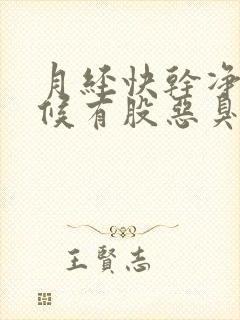 月經快幹凈
候有股惡臭
王賢志